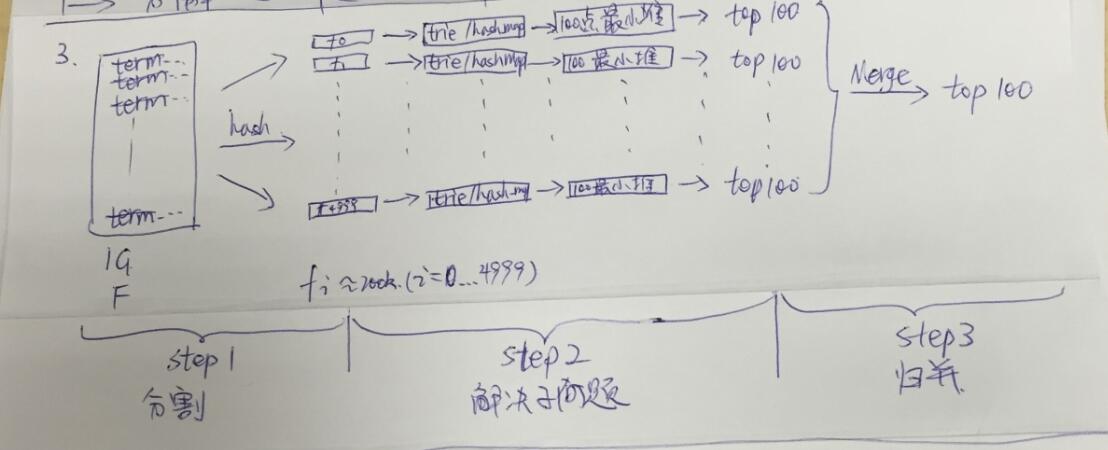 3.
term... f0 → trie/hashmap → 100点最小堆 → top 100
term... f1 → trie/hashmap → 100最小堆 → top 100
term...
hash
Merge → top 100
term... f4999 → trie/hashmap → 100最小堆 → top100
1G
F
fi≈200k.(i=0...4999)
step1 step2 step3
分割 解决子问题 归并